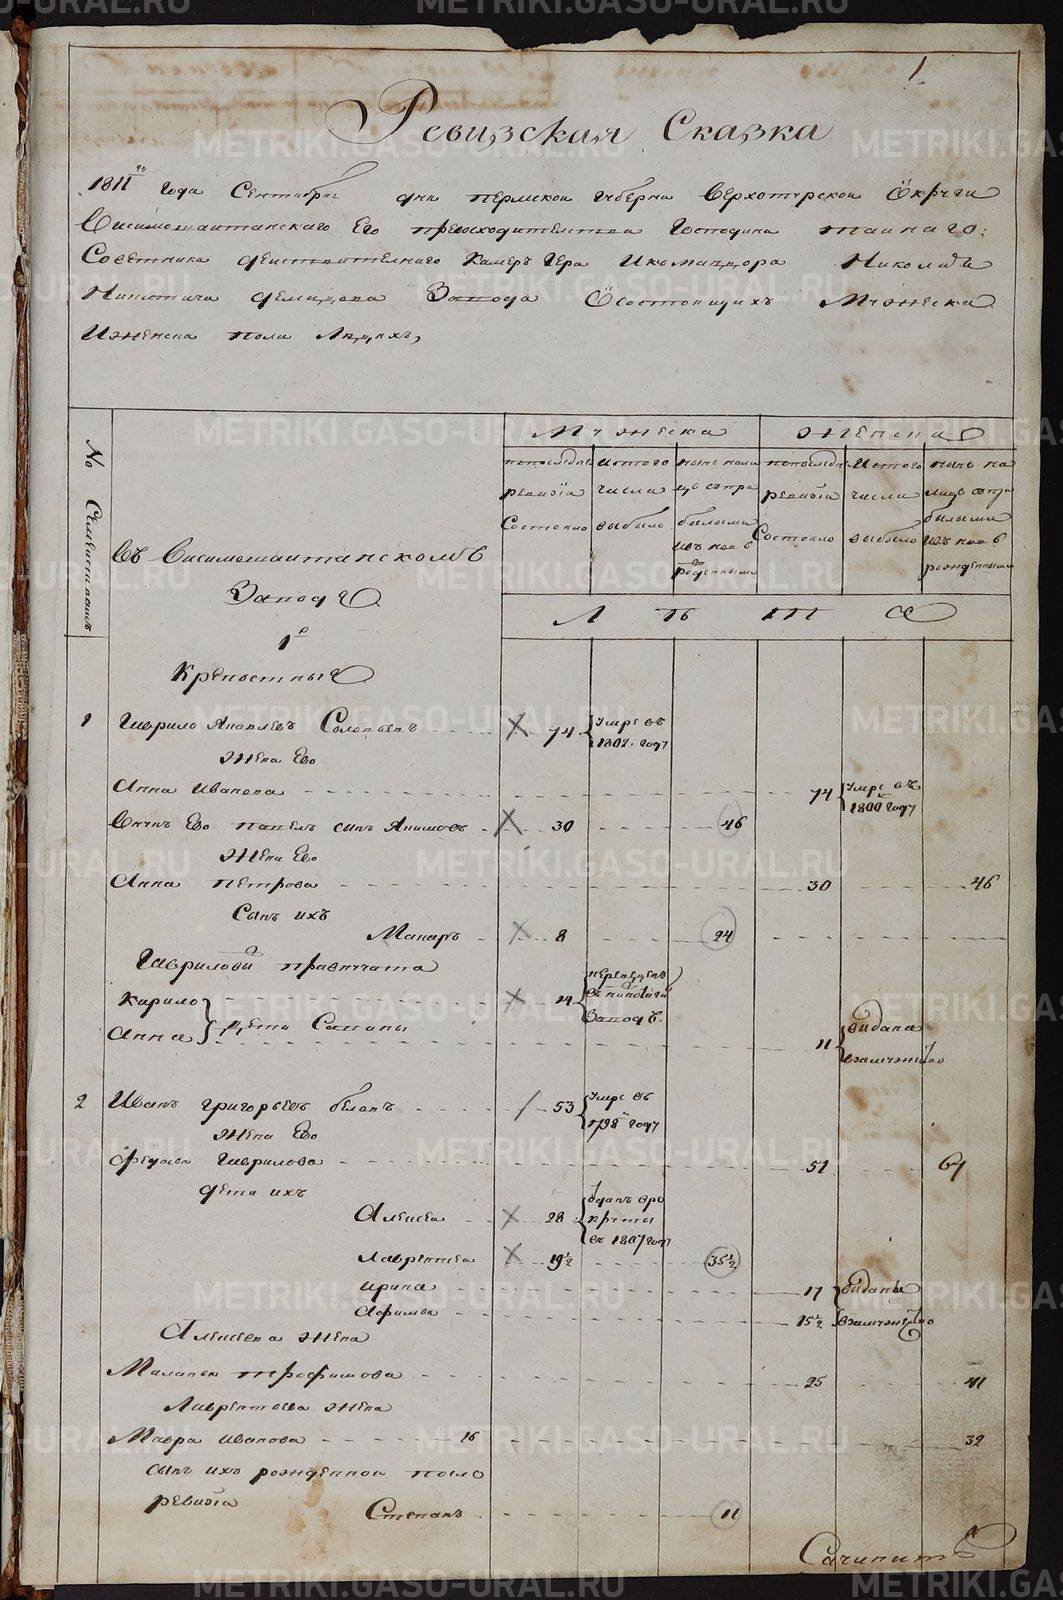 1
Ревизская Сказка
1811го года Сентября дня пермской губерни Верхотурской Округи
Висимошаитанскаго Его превосходителства Господина таинаго
Советника деиствителнаго Камергера Икомандора Николая
Никитича демидова Завода Осостоящихъ Мужеска
Иженска пола Людехъ,
No Семеиствамъ
Въ Висимошаитанскомъ
Заводе
1е
Крепостные
Мужеска
Женска
попоследнеи ревизiи Состояло
Изтого числа выбыло
ныне налицо
попоследнеи ревизiи Состояло
Изтого числа выбыло
ныне налицо
Л Ѣ Т А
1 Гаврило Яковлевъ Соловьевъ 74 Умре въ 1802 году
Жена Ево
Анна Иванова 74 Умре въ 1800 году
Внукъ Ево павелъ сынъ Якимовъ 30 46
Жена Ево
Анна петрова 30 46
Сынъ ихъ
Макаръ 8 24
Гавриловы правнучата
Кирило 24
Анна 11 выдана взамужество
дети
2 Иванъ григорьевъ беловъ 53 Умре въ 1798 году
Жена Ево
федосья Гаврилова 51 67
дети ихъ
Алексеи 28 отданъ вре круты въ 1807 году
Лаврентеи 19½ 35½
ирина 17 выданы
Афимья 15½ взамужество
Алексеева жена
Маланья трофимова 25 41
Лаврентьева жена
Мавра иванова 16 32
сынъ ихъ рожденнои после
ревизiи
Степанъ 11